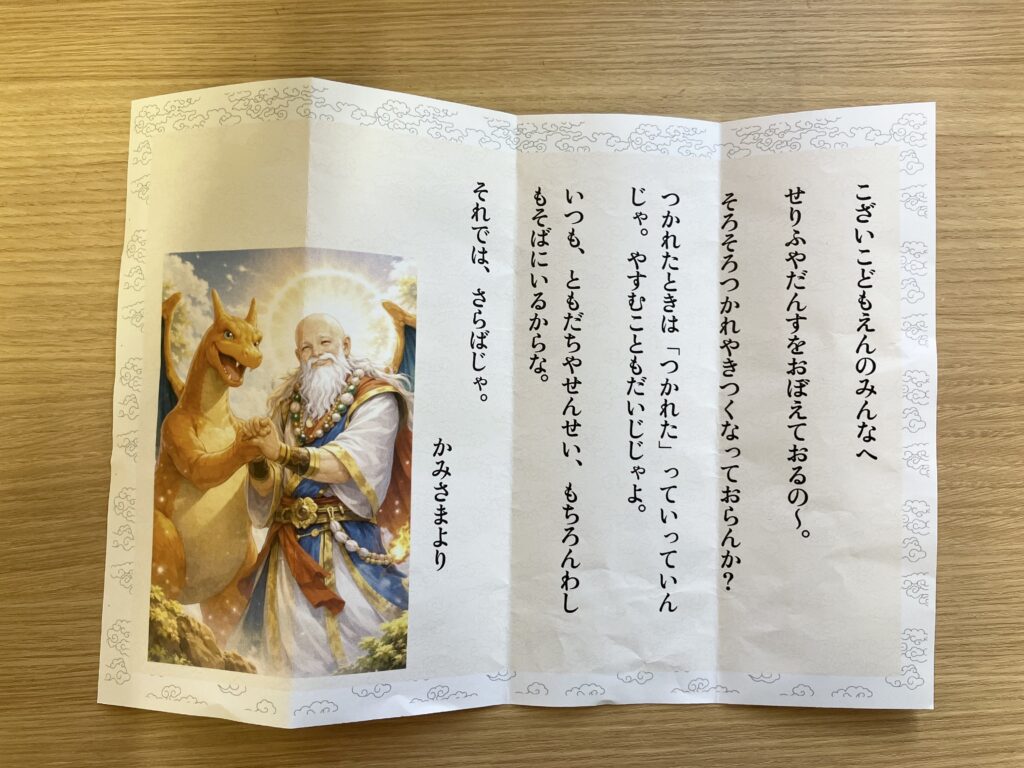 こざいこどもえんのみんなへ
せりふやだんすをおぼえておるの〜。
そろそろつかれやきつくなっておらんか？
つかれたときは「つかれた」っていっていいん
じゃ。やすむこともだいじじゃよ。
いつも、ともだちやせんせい、もちろんわし
もそばにいるからな。
それでは、さらばじゃ。
かみさまより